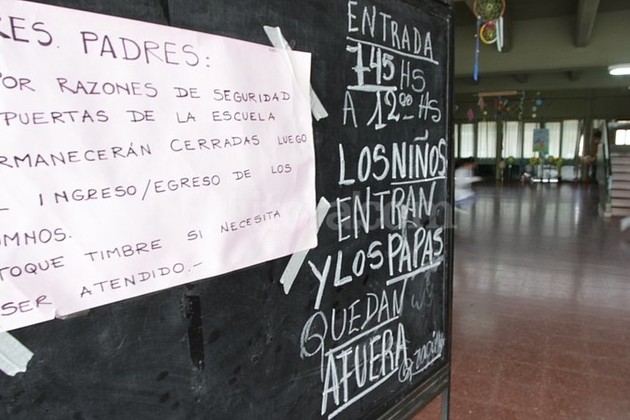 RES. PADRES:
OR RAZONES DE SEGURIDAD
PUERTAS DE LA ESCUELA
RMANECERÁN CERRADAS LUEGO
L INGRESO/EGRESO DE LOS
UMNOS.
TOQUE TIMBRE SI NECESITA
SER ATENDIDO.-
ENTRADA
745 HS
A 12 00 HS
LOS NIÑOS
ENTRAN
Y LOS PAPAS
QUEDAN
AFUERA